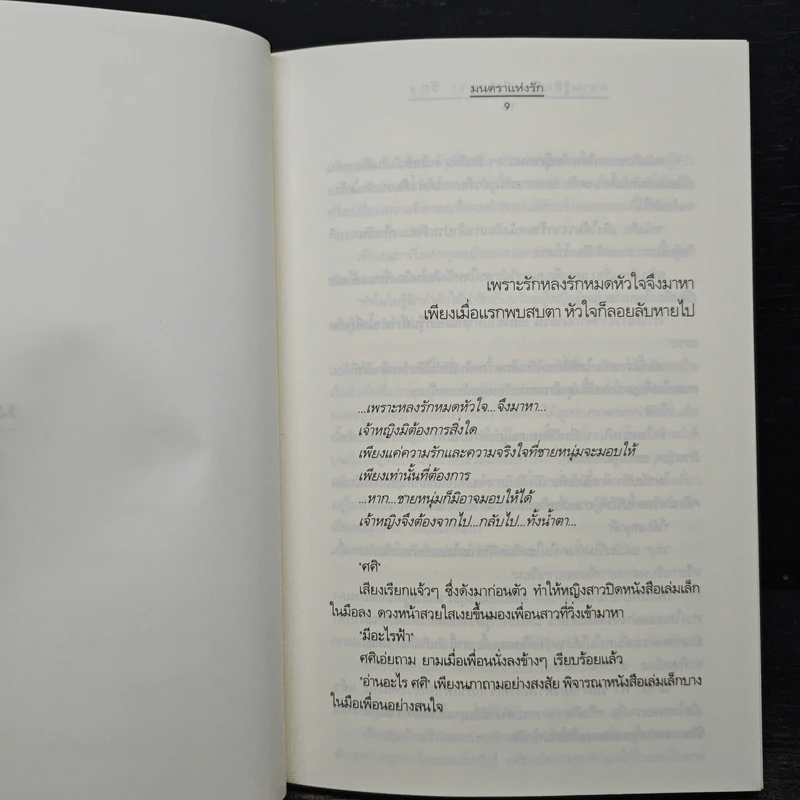 มนตราแห่งรัก
๑
เพราะรักหลงรักหมดหัวใจจึงมาหา
เพียงเมื่อแรกพบสบตา หัวใจก็ลอยลับหายไป
...เพราะหลงรักหมดหัวใจ...จึงมาหา...
เจ้าหญิงมิต้องการสิ่งใด
เพียงแค่ความรักและความจริงใจที่ชายหนุ่มจะมอบให้
เพียงเท่านั้นที่ต้องการ
...หาก...ชายหนุ่มก็มิอาจมอบให้ได้
เจ้าหญิงจึงต้องจากไป...กลับไป...ทั้งน้ำตา...
"ศศิ"
เสียงเรียกแจ้วๆ ซึ่งดังมาก่อนตัว ทำให้หญิงสาวปิดหนังสือเล่มเล็ก
ในมือลง ดวงหน้าสวยใสเงยขึ้นมองเพื่อนสาวที่วิ่งเข้ามาหา
"มีอะไรฟ้า"
ศศิเอ่ยถาม ยามเมื่อเพื่อนนั่งลงข้างๆ เรียบร้อยแล้ว
"อ่านอะไร ศศิ" เพียงนภาถามอย่างสงสัย พิจารณาหนังสือเล่มเล็กบาง
ในมือเพื่อนอย่างสนใจ